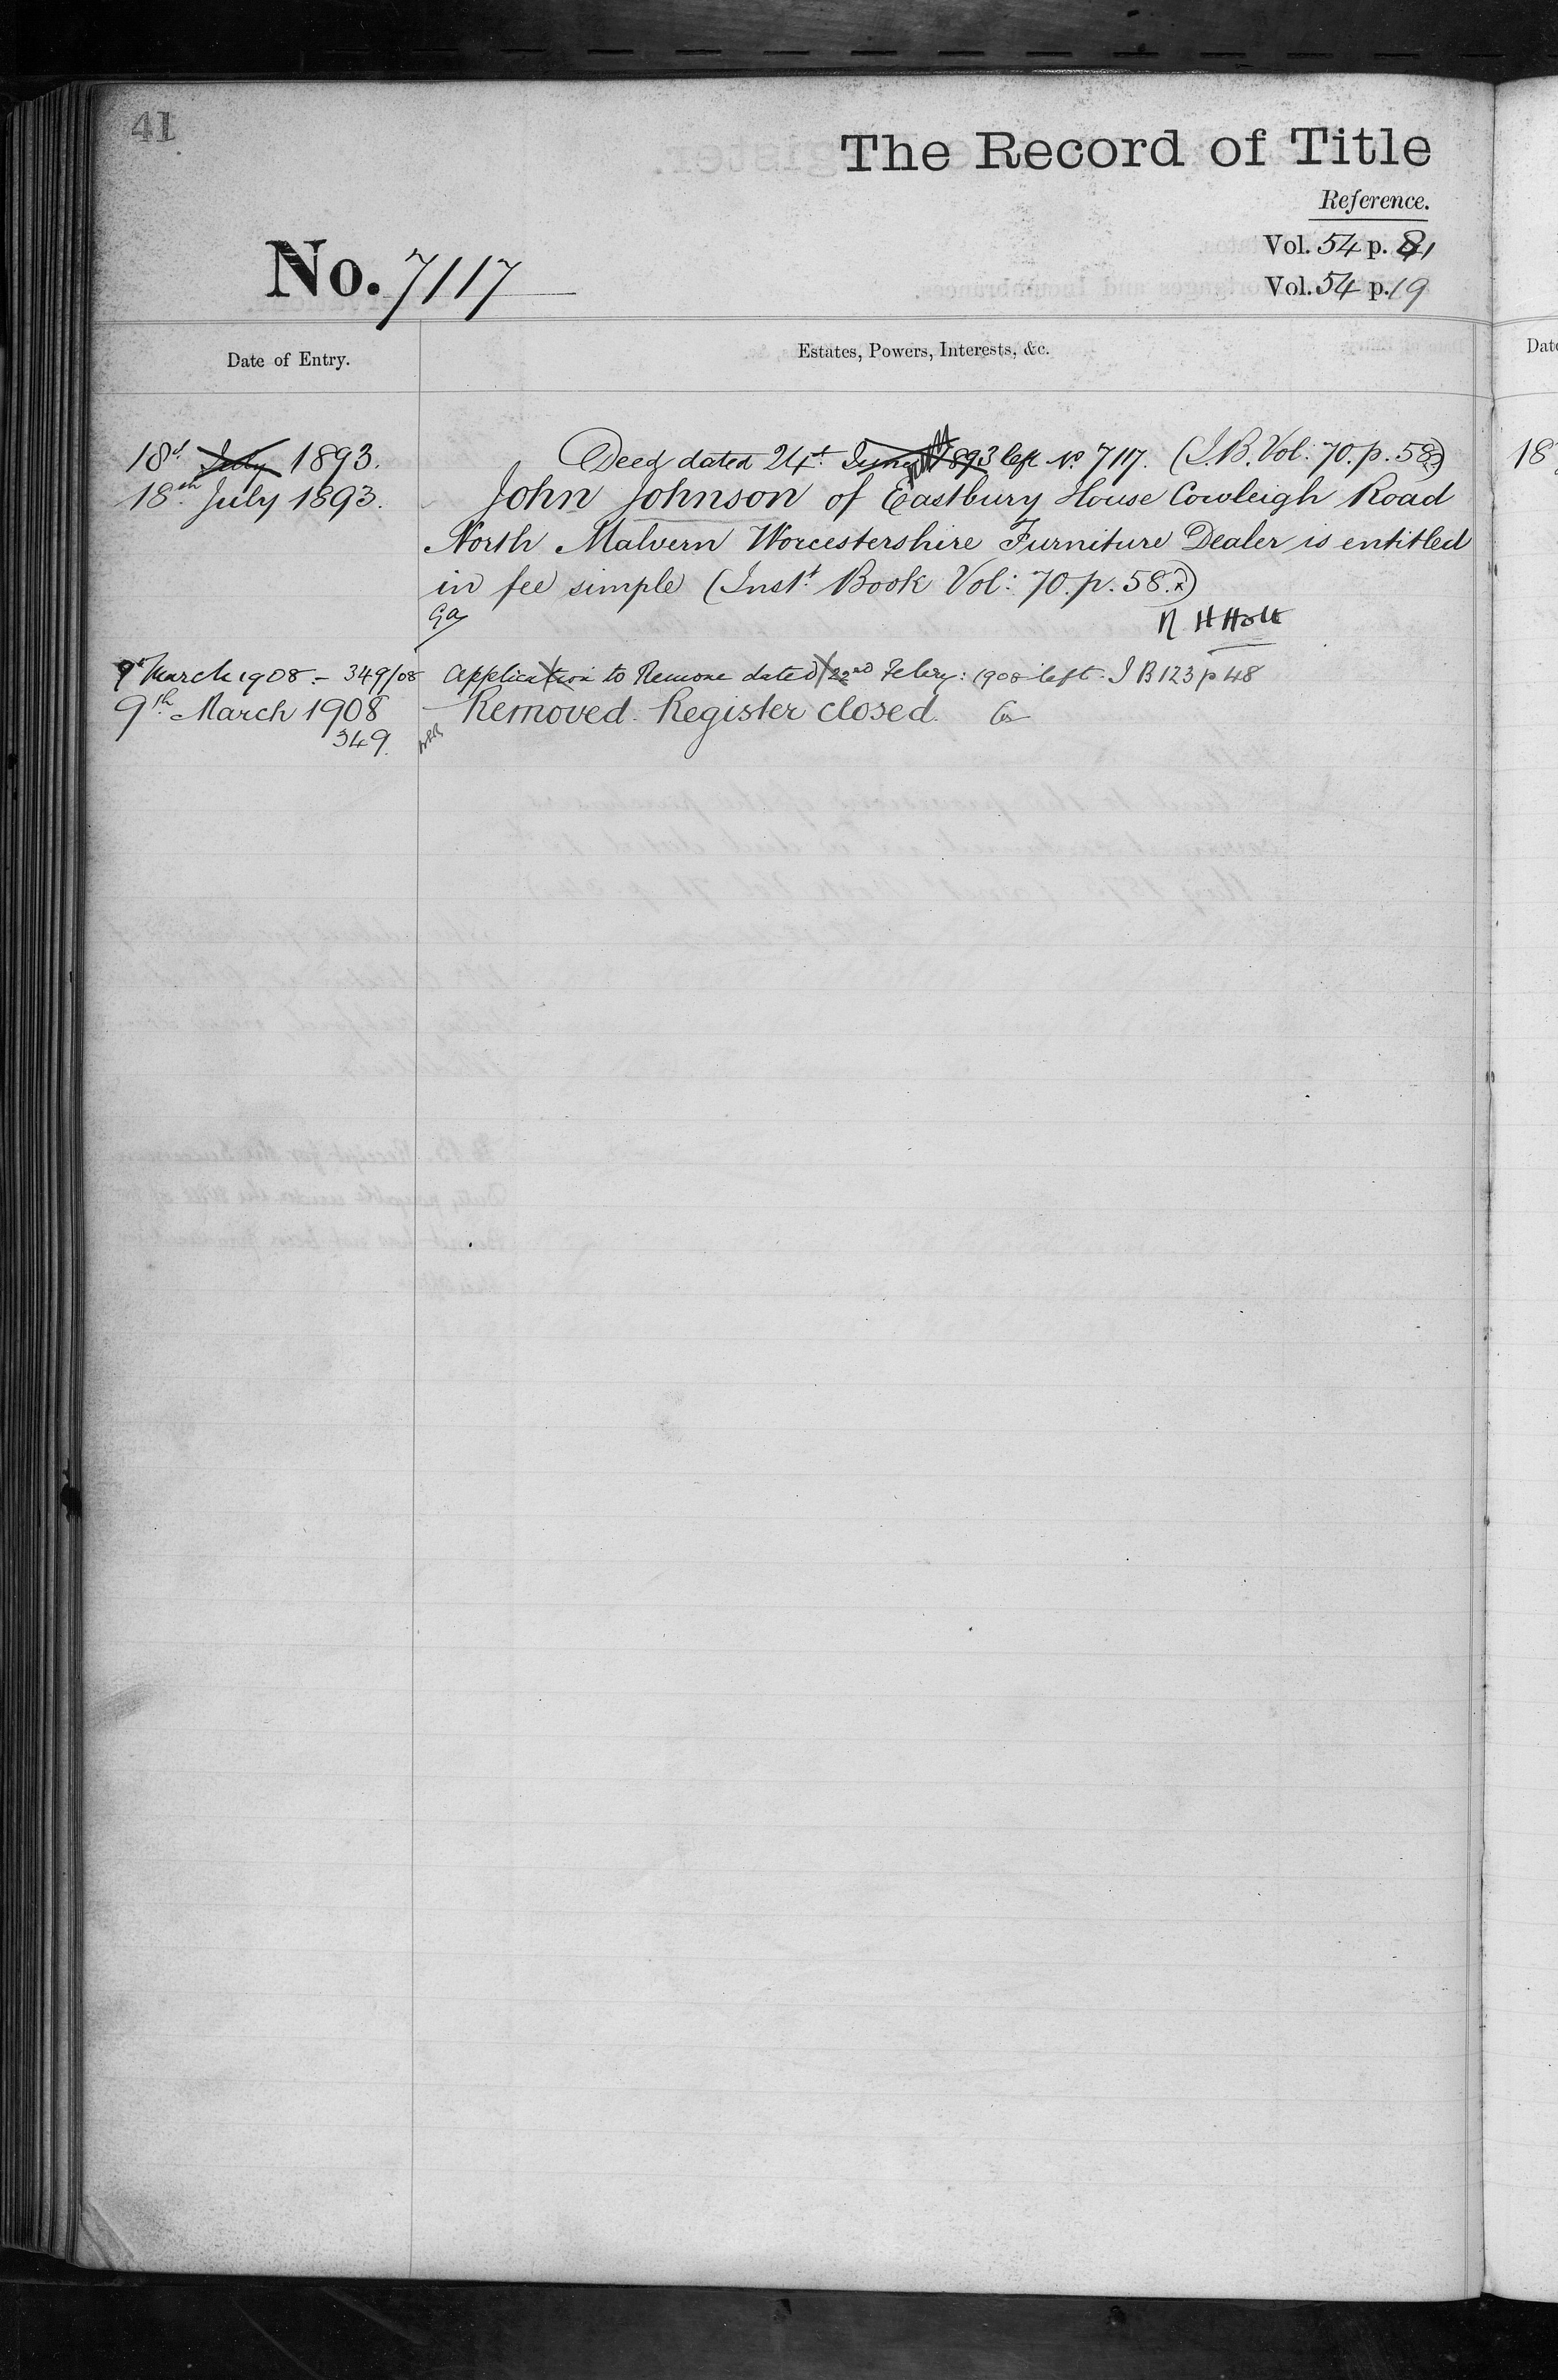 41
The Record of Title
Reference.
Vol. 54 p. 41
No. 7117
Vol. 54 p. 19
Date of Entry.
Estates, Powers, Interests, &c.
18th July 1893. Deed dated 24th June 1893 left No 7117. (I.B. Vol: 70. p. 582)
18th July 1893. John Johnson of Eastbury House Cowleigh Road
North Malvern Worcestershire Furniture Dealer is entitled
in fee simple (Inst.t Book Vol: 70. p. 582)
Ga N H Holt
9th March 1908 - 349/08 Application to Remove dated 22nd Febry: 1908 left. I B 123 p 48
9th March 1908 Removed. Register closed.
349.
Date
18